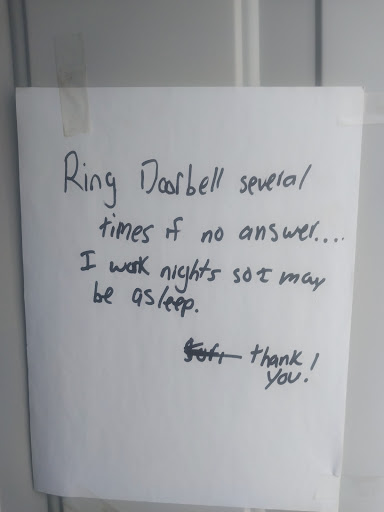 Ring Doorbell several
times if no answer....
I work nights so I may
be asleep.
thank
you!